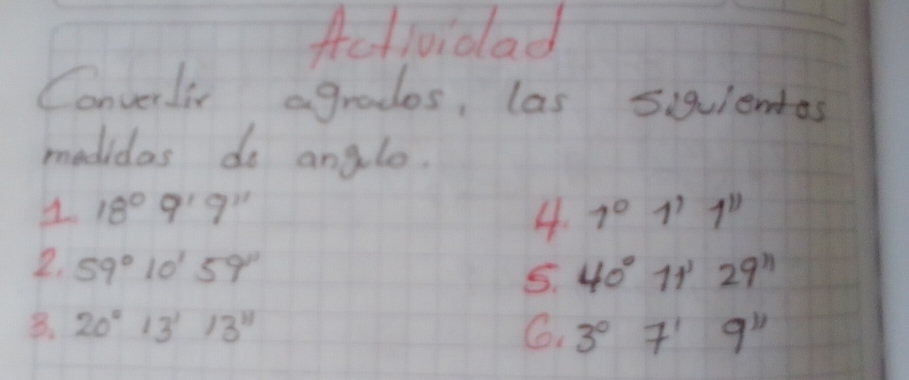 Actividad
Convertir agrados, las siguientes
medidas de angulo.
1. 18° 9' 9"
2. 59° 10' 59"
3. 20° 13' 13"
4. 1° 1' 1"
5. 40° 11' 29"
6. 3° 7' 9"